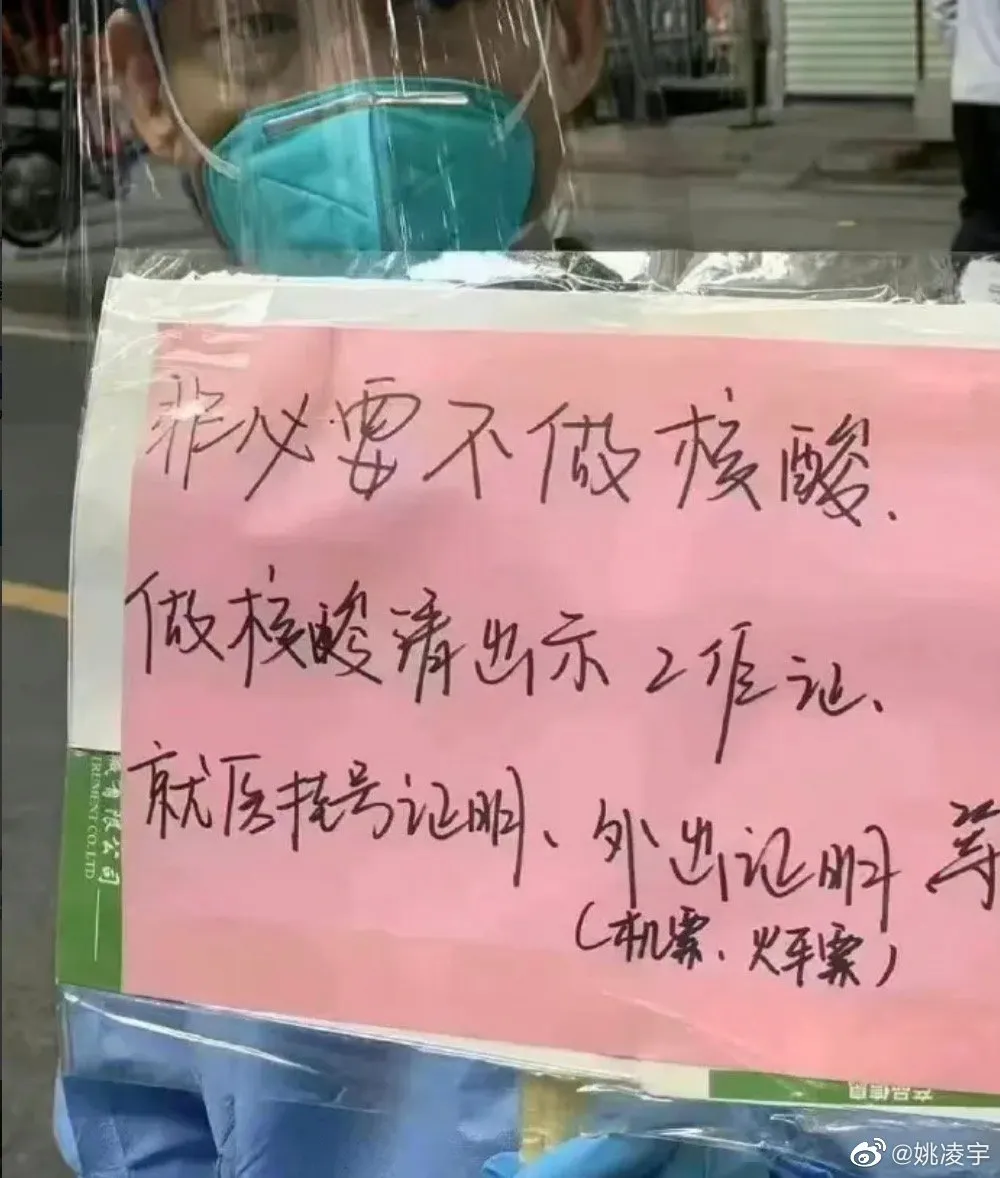 非必要不做核酸.
做核酸请出示工作证、
就医挂号证明、外出证明等
(机票、火车票)
限公司
EREMENT CO.,LTD
产品信息
@姚凌宇